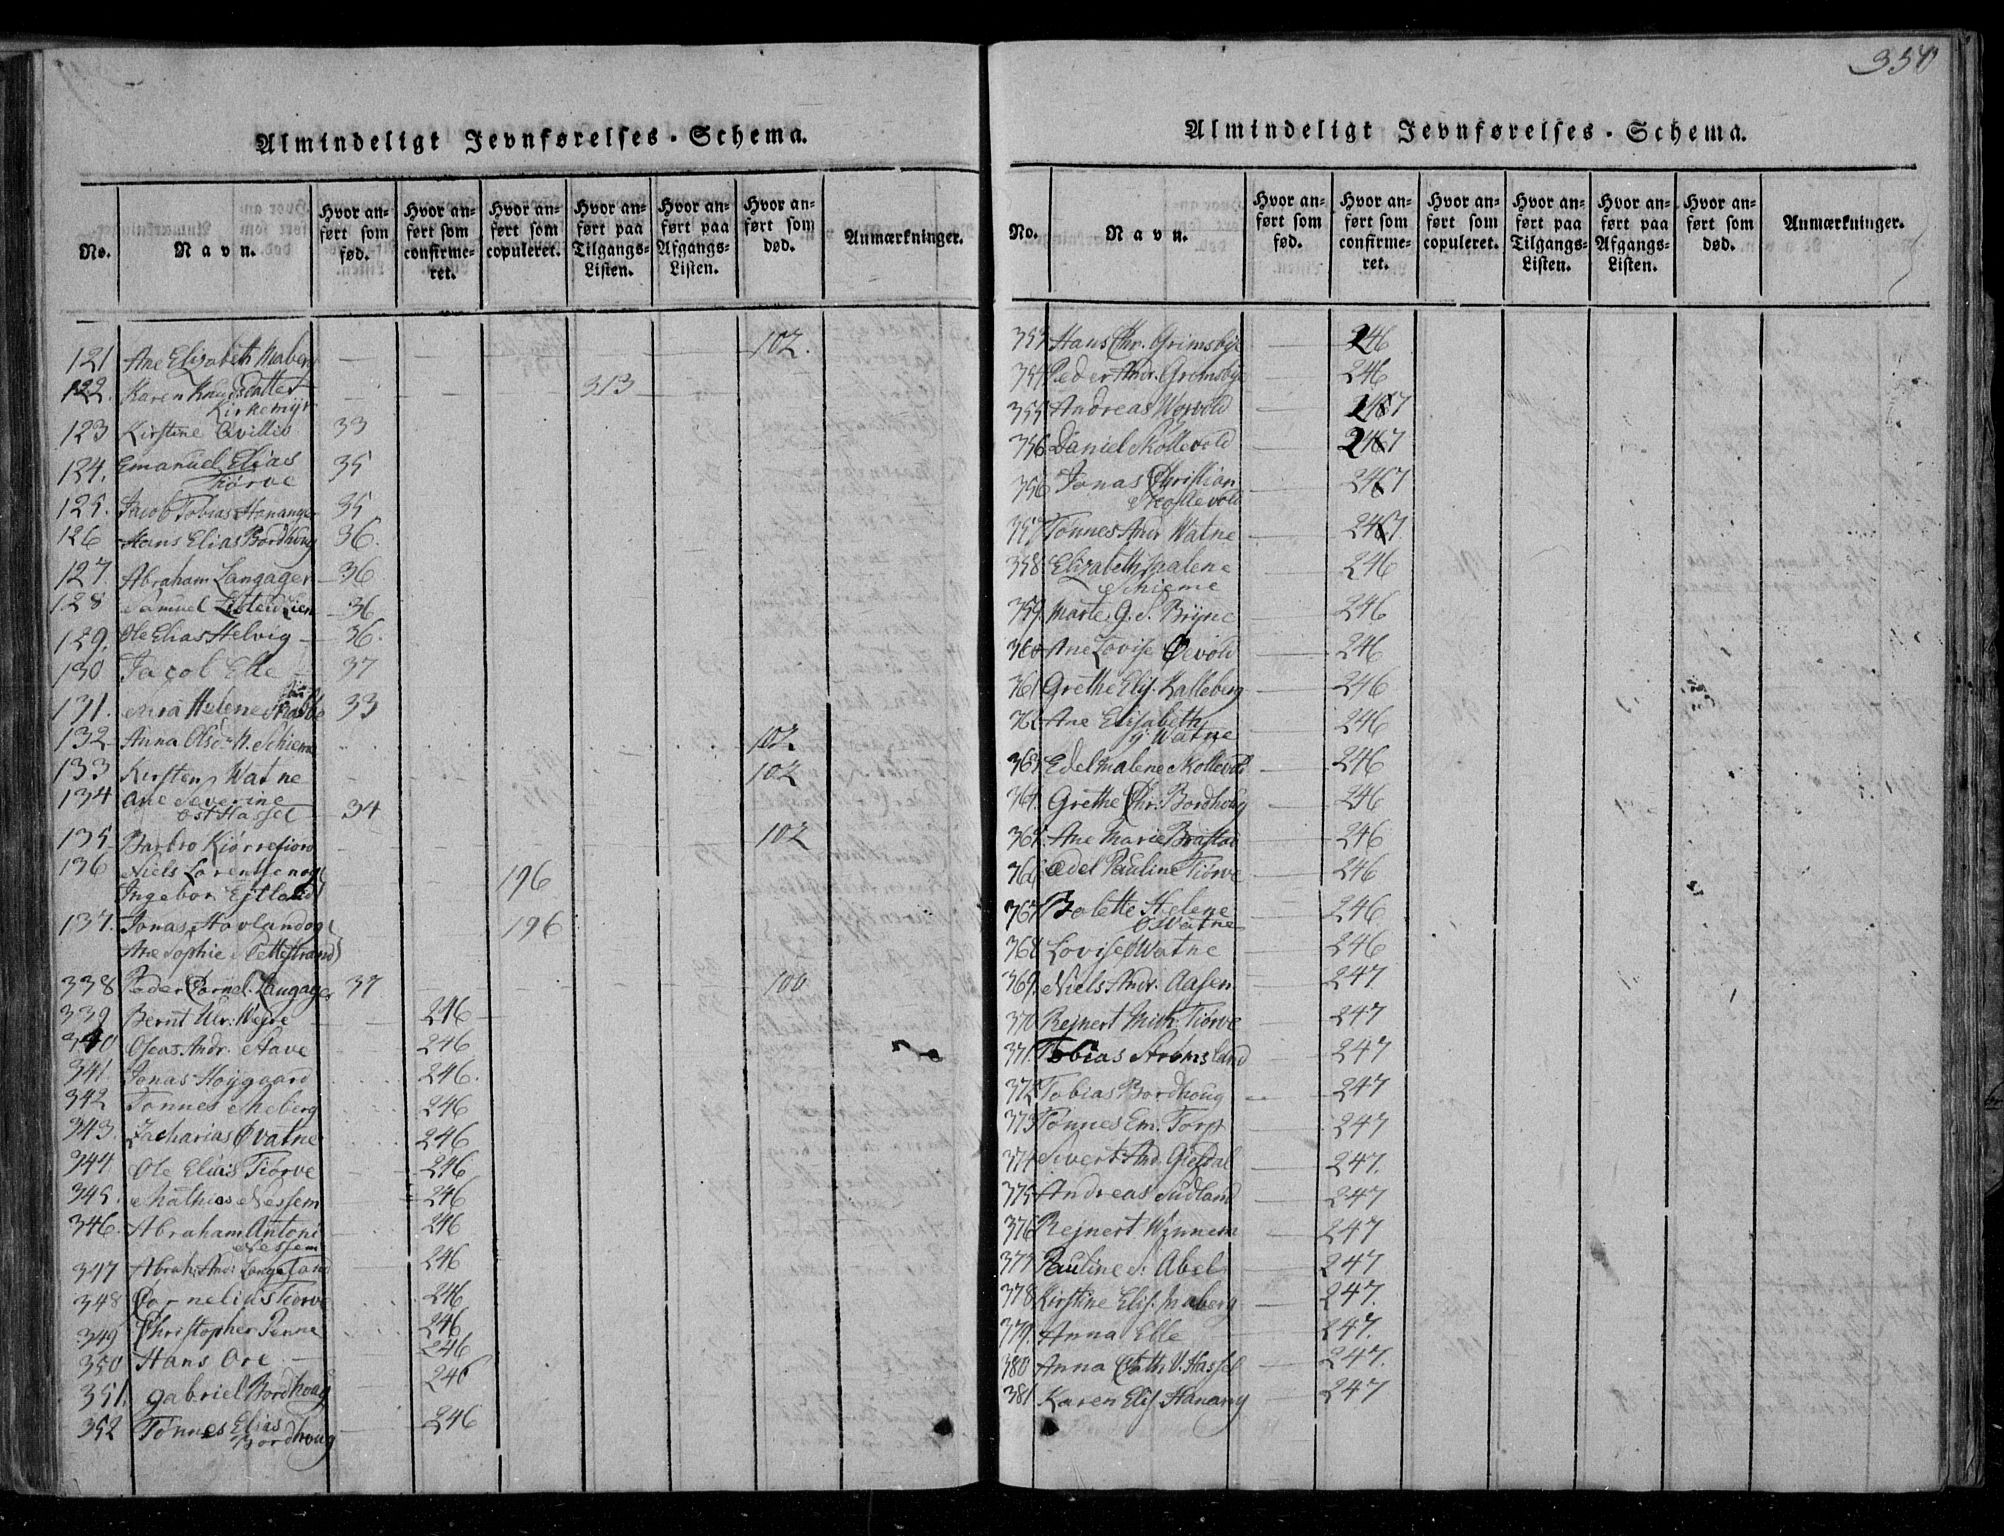 350
Almindeligt Jevnførelses-Schema.
No.
Navn.
Hvor anført som fød.
Hvor anført som confirmeret.
Hvor anført som copuleret.
Hvor anført paa Tilgangs-Listen.
Hvor anført paa Afgangs-Listen.
Hvor anført som død.
Anmærkninger.
121 Ane Elizabeth Maberg 102.
122. Karen Knudsdatter 313
Kirkemÿr
123 Kirstine Qvillio 33
124. Emanuel Elias 35
Tiørve
125. Jacob Tobias Hananger 35
126 Hans Elias Bordhoug 36.
127. Abraham Langager 36
128 Samuel 36
129. Ole Elias Helvig 36.
130 Jacob Elle 37
131. Helene 33
132 Anna Olsd. N. Skieme 102
133 Kirsten Watne 102
134 Ane Severine
ost Hassel 34
135 Barbro Kiørrefiord 102
136 Niels Lorentsen og
Ingebor Ejtland 196
137. Jonas Hovland og 196
Ane Sophie
338 Peder Cornel. Langager 37 100
339 Bernt Ulr. Wejre 246
340 Oseas Andr. Stave 246
341 Jonas Hoygaard 246.
342 Tønnes Meberg 246
343. Zacharias Øvatne 246
344 Ole Elias Tiørve 246
345. Mathias Nessem 246
346. Abraham Antoni 246
Nessem
347 Abrah. Andr. Langeland 246
348 Cornelius Tiørve 246
349 Christopher Penne 246
350 Hans Ore 246
351. Gabriel Bordhoug 246
352 Tønnes Elias 246
Bordhoug
Almindeligt Jevnførelses-Schema.
No.
Navn.
Hvor anført som fød.
Hvor anført som confirmeret.
Hvor anført som copuleret.
Hvor anført paa Tilgangs-Listen.
Hvor anført paa Afgangs-Listen.
Hvor anført som død.
Anmærkninger.
353 Hans Chr. Grimsbÿe 246
354 Peder Andr. Grimsbÿe 246
355 Andreas 247
356 Daniel Skollevold 247
356 Jonas Christian 247
Skollevold
357 Tønnes Andr. Watne 247
358 Elizabeth Malene 246
Schieme
359 Marte G. S. Brÿne 246
360 Ane Lovise Øevold 246
361 Grethe Elis. Kalleberg 246
362 Ane Elisabeth 246
Watne
363 Edel Malene Skollevold 246
364. Grethe Chr. Bordhoug 246
365 Ane Marie Brastad 246
366 Edel Pauline Tiørve 246
367 Bolette Helene 246
Watne
368 Lovise Watne 246
369. Niels Andr. Aasen 247
370 Rejnert Mich. Tiørve 247
371. Tobias Strømsland 247
372 Tobias Bordhoug 247
373 Tønnes Em. Torp 247
374 Sivert And. Giesdal 247.
375 Andreas Sudland 247
376 Rejnert Wÿnnem 247
377 Pauline S. Abel 247
378 Kirstine Elis. Maberg 247.
379. Anna Elle 247.
380 Anna Cath. V. Hassel 247.
381 Karen Elis. Hanang 247